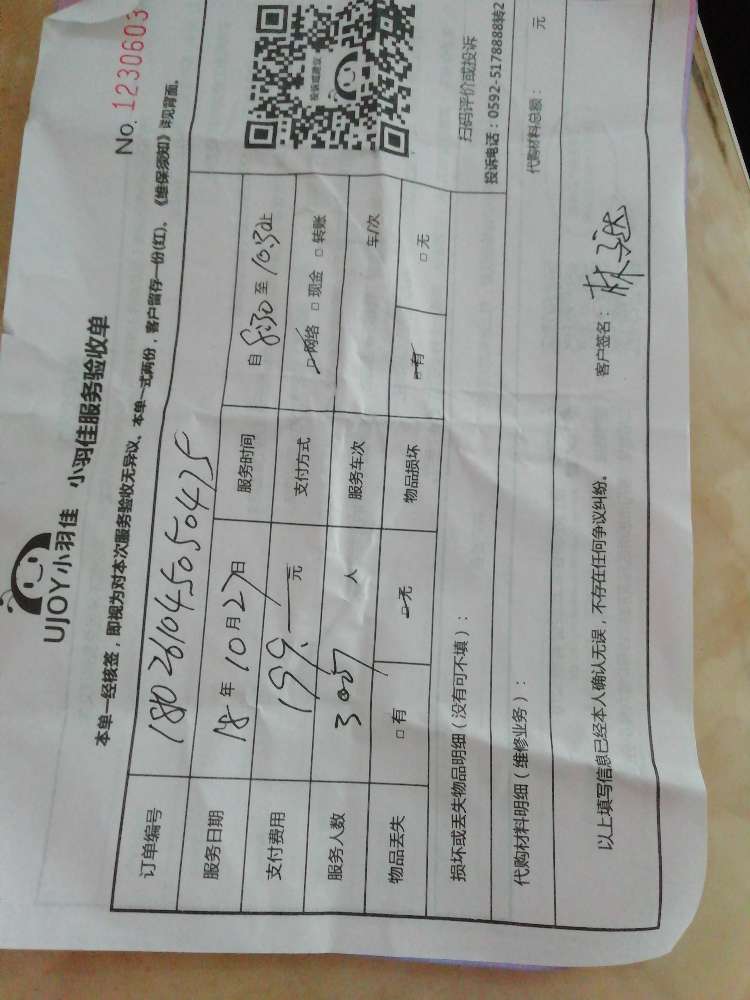 UJOY小羽佳 小羽佳服务验收单
No. 1230603
本单一经核签，即视为对本次服务验收无异议、本单一式两份，客户留存一份(红)。《维保须知》详见背面。
订单编号
服务日期 18 年 10 月 27 日 服务时间 自 8:30 至 10:30止
支付费用 199.— 元 支付方式 网络 □ 现金 □ 转账
服务人数 人 服务车次 车/次
物品丢失 □ 有 无 物品损坏 有 □ 无
损坏或丢失物品明细（没有可不填）：
代购材料明细（维修业务）： 代购材料总额： 元
投诉或建议
扫码评价或投诉
投诉电话：0592-5178888转2
以上填写信息已经本人确认无误，不存在任何争议纠纷。 客户签名：